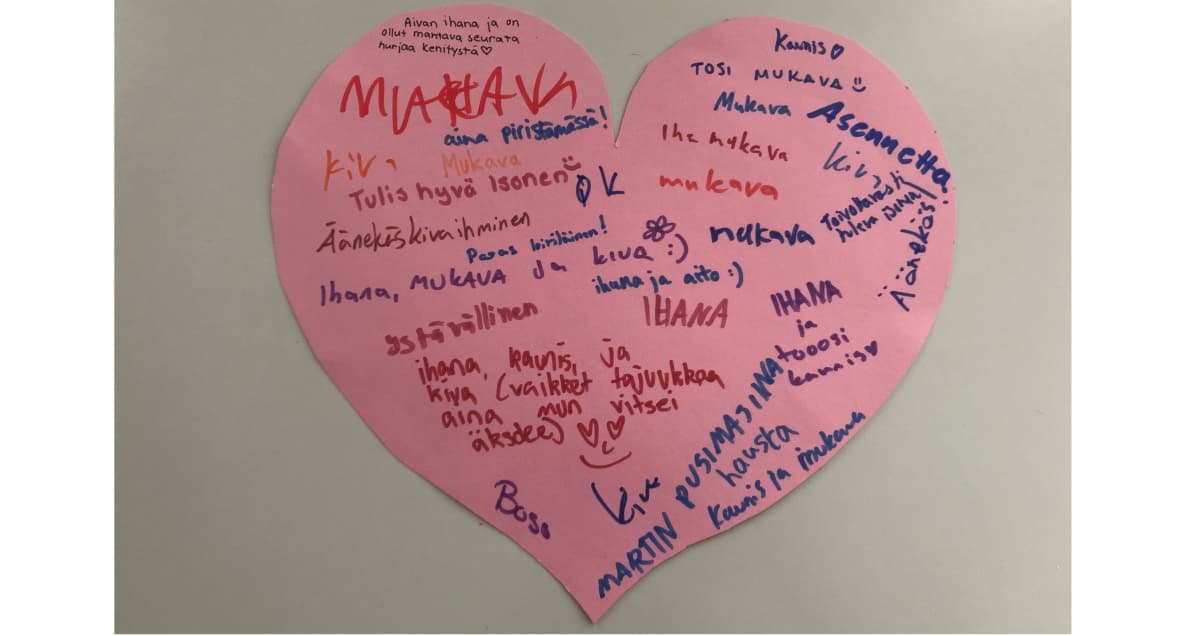 Aivan ihana ja on
ollut mahtava seurata
hurjaa kehitystä♡
MUKAVA
aina piristämässä!
Kiva
Mukava
Tulis hyvä Isonen
OK
Äänekäs kiva ihminen
Paras
Ihana, MUKAVA ja kiva :)
ihana ja aito :)
ystävällinen
IHANA
ihana, kaunis, ja
kiva (vaikket tajuukkaa
aina mun vitsei
äksdee)
Boss
Kaunis♡
TOSI MUKAVA
Mukava
Asennetta
Iha mukava
kiva
mukava
mukava
Toivottavasti
tuleva
Äänekäs!
IHANA
ja
tooosi
kaunis♥
Kiva
MARTIN PUSIMASIINA
hausta
Kaunis ja mukava